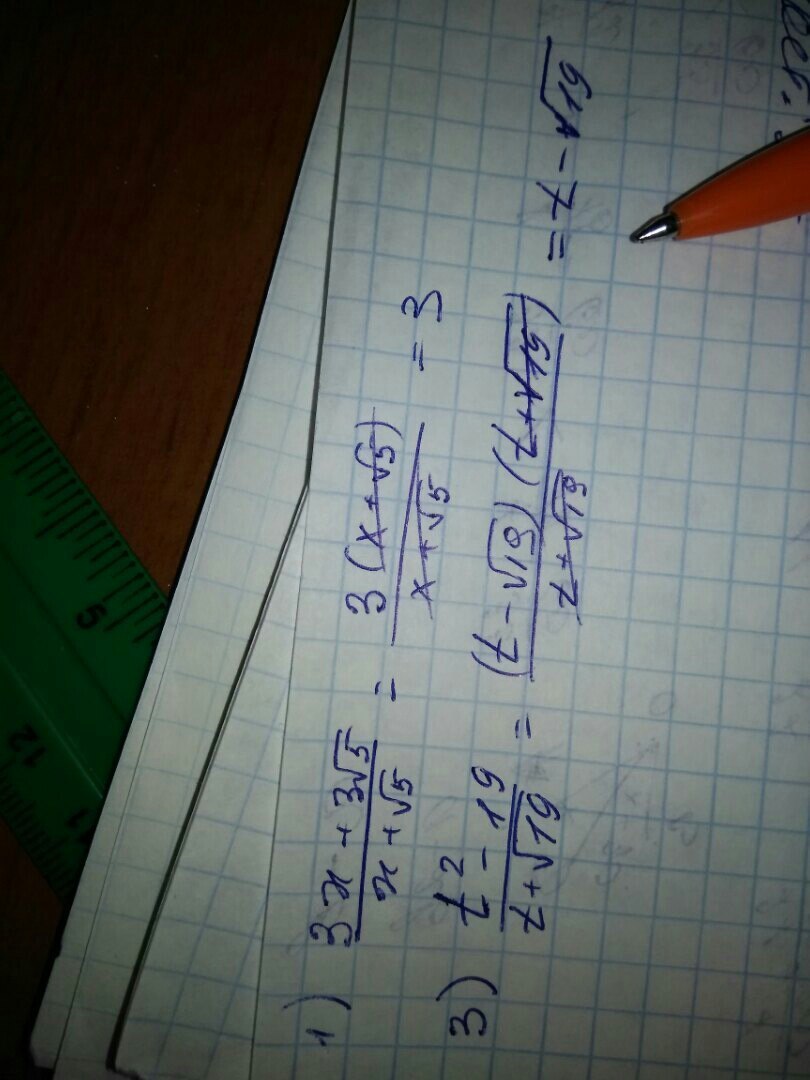 1) (3x + 3√5)/(x + √5) = 3(x + √5)/(x + √5) = 3
3) (t² - 19)/(t + √19) = (t - √19)(t + √19)/(t + √19) = t - √19
9
12
11